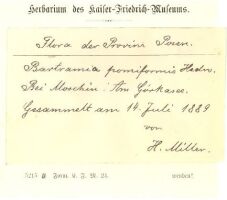 Herbarium des Kaiser-Friedrich-Museums.
Flora der Provinz Posen.
Bartramia pomiformis Hedw.
Bei Moschin: Am Górkasee.
Gesammelt am 14. Juli 1889
von
H. Miller.
Form. K. F. M. 24.
wenden!